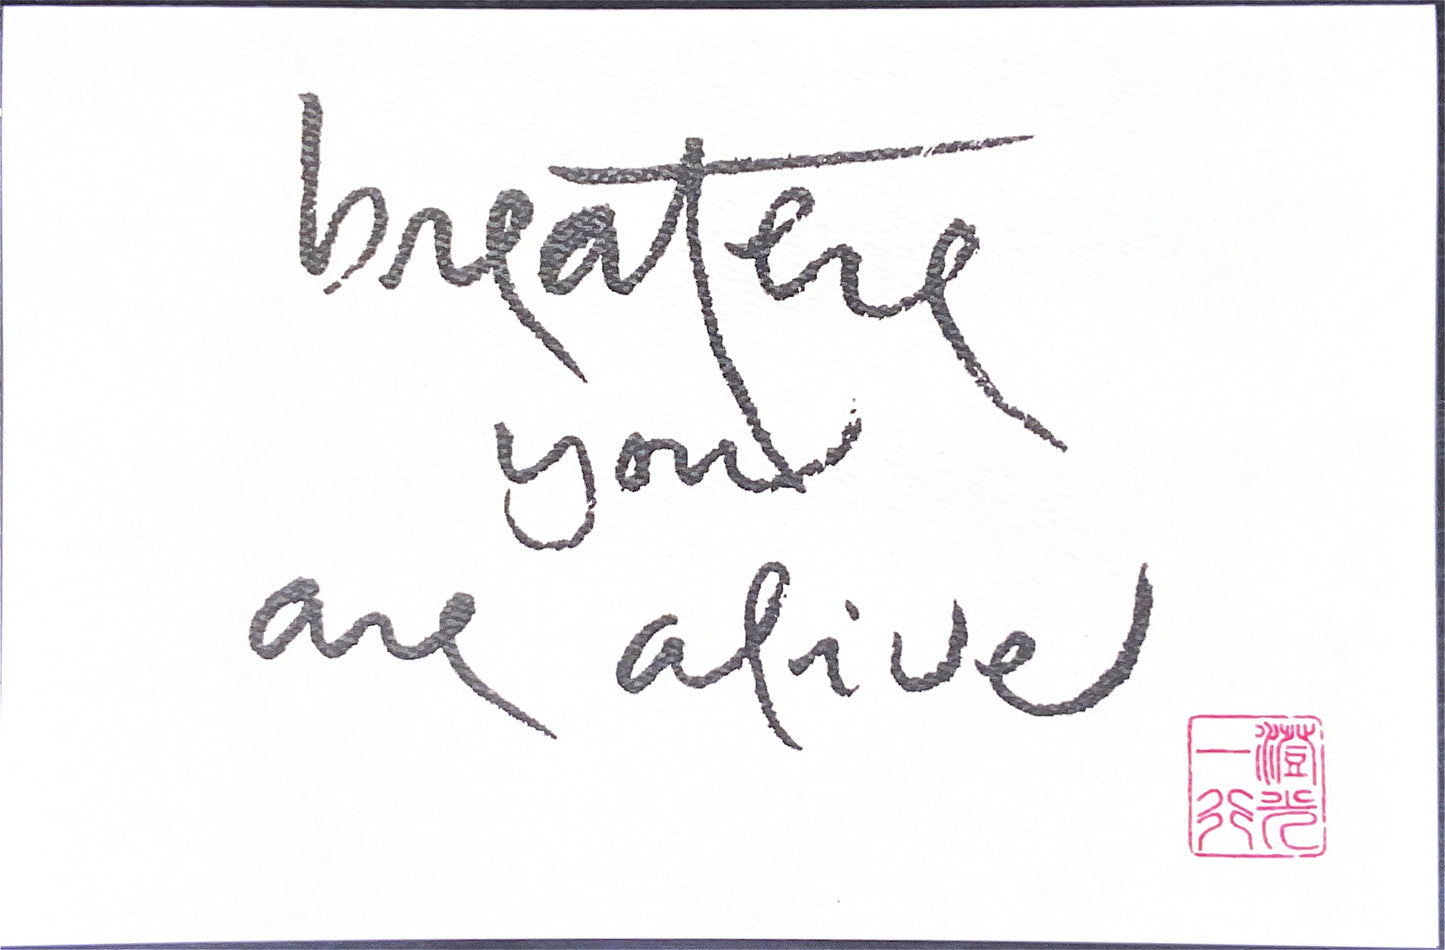 breathe
you
are alive
澄光
一行